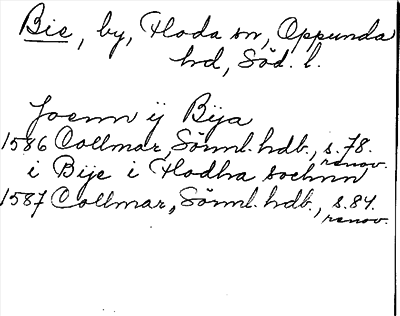 Bie, by, Floda sn, Oppunda
hd, Söd. l.
Joenn ÿ Bija
1586 Collmar, Sörml. hdb., s. 78.
renov.
i Bije i Flodha sochnn
1587 Collmar, Sörml. hdb., s. 84.
renov.